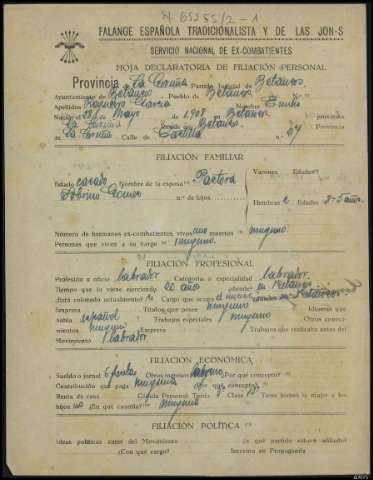 FALANGE ESPAÑOLA TRADICIONALISTA Y DE LAS JON-S
SERVICIO NACIONAL DE EX-COMBATIENTES
HOJA DECLARATORIA DE FILIACIÓN PERSONAL
Provincia de La Coruña Partido Judicial de Betanzos
Ayuntamiento de Betanzos Pueblo de Betanzos
Apellidos García Nombre Emilio
Nació el de Mayo de 1908 en Betanzos provincia
La Coruña Reside en Betanzos
La Coruña Calle de n.º 64
FILIACIÓN FAMILIAR
Estado casado Nombre de la esposa Pastora
n.º de hijos
Varones Edades
Hembras 2 Edades 3-5 años
Número de hermanos ex-combatientes vivos uno muertos ninguno
Personas que viven a su cargo ninguno
FILIACIÓN PROFESIONAL
Profesión u oficio labrador Categoría o especialidad labrador
Tiempo que lo viene ejerciendo 20 año ¿dónde? en Betanzos
¿Está colocado actualmente? Cargo que ocupa el mismo ¿dónde? en Betanzos
Empresa Títulos que posee ninguno Idiomas que
sabe español Trabajos especiales ninguno Otros conoci-
mientos ninguno Empresa Trabajos que realizaba antes del
Movimiento labrador
FILIACIÓN ECONÓMICA
Sueldo o jornal 6 pesetas Otros ingresos ninguno Por qué concepto?
Contribución que paga ninguna ¿por qué concepto?
Renta de casa Cédula Personal Tarifa Clase 13 Tiene bienes la mujer o los
hijos no ¿En qué cuantía? ninguno
FILIACIÓN POLÍTICA
Ideas políticas antes del Movimiento ¿a qué partido estuvo afiliado?
¿Con qué cargo? Intervino en Propaganda